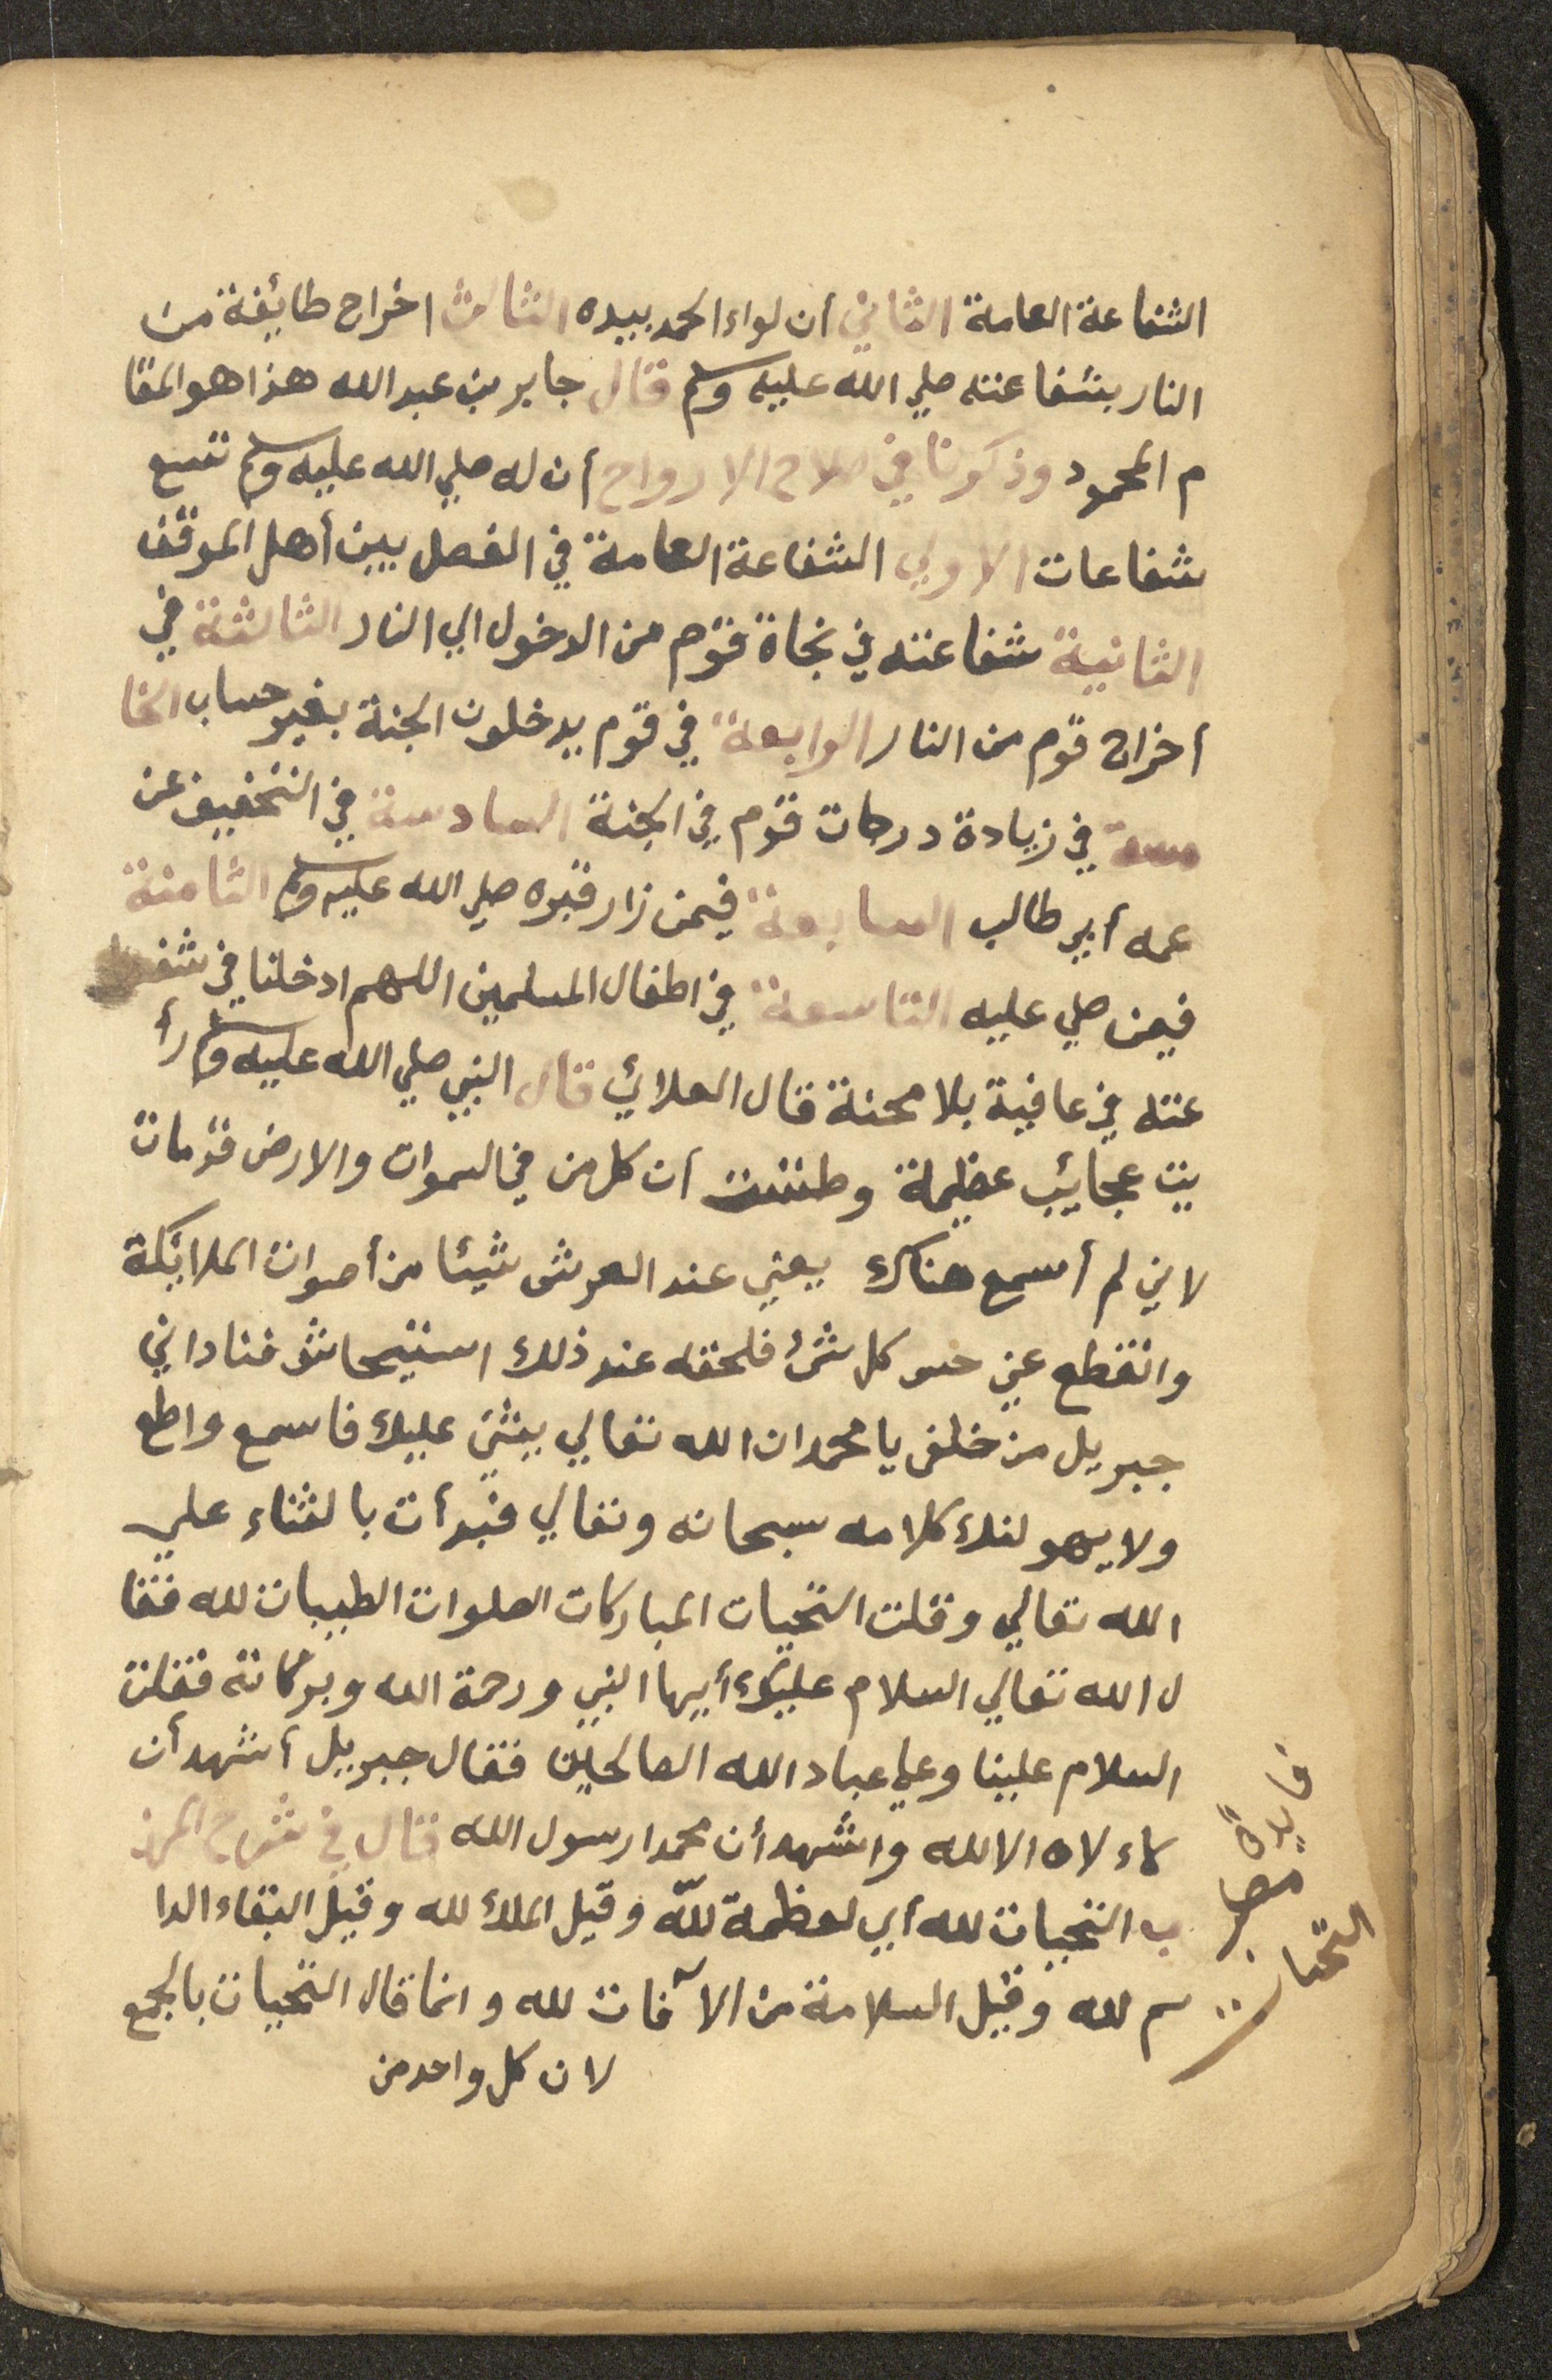 الشفاعة العامة الثاني أن لواء الحمد بيده الثالث اخراج طائفة من
النار بشفاعته صلي الله عليه وسلم قال جابر بن عبد الله هذا هو المقا
م المحمود وذكرنا في صلاح الارواح أن له صلي الله عليه وسلم تسع
شفاعات الاولي الشفاعة العامة في الفصل بين أهل الموقف
الثانية شفاعته في نجاة قوم من الدخول الي النار الثالثة في
أخراج قوم من النار الرابعة في قوم يدخلون الجنة بغير حساب الخا
مسة في زيادة درجات قوم في الجنة السادسة في التخفيف عن
عمه أبي طالب السابعة فيمن زار قبره صلي الله عليه وسلم الثامنة
فيمن صلي عليه التاسعة في اطفال المسلمين اللهم ادخلنا في شفا
عته في عافية بلا محنة قال العلائي قال النبي صلي الله عليه وسلم رأ
يت عجائب عظيمة وظننت أن كل من في السموات والارض قد مات
لاني لم أسمع هناك يعني عند العرش شيئا من أصوات الملائكة
وانقطع عني حس كل شئ فلحقه عند ذلك استيحاش فناداني
جبريل من خلفي يا محمد ان الله تعالي يثني عليك فاسمع واطع
ولا يهولنك كلامه سبحانه وتعالي فبدأت بالثناء علي
الله تعالي وقلت التحيات المباركات الصلوات الطيبات لله فقا
ل الله تعالي السلام عليك أيها النبي ورحمة الله وبركاته فقلت
السلام علينا وعلي عباد الله الصالحين فقال جبريل أشهد أن
لاء لاه الا لله واشهد أن محمدا رسول الله قال في شرح المهذ
ب التحيات لله أي لعظمة لله وقيل الملك لله وقيل البقاء الدا
ىم لله وقيل السلامة من الآفات لله وانما قال التحيات بالجمع
لان كل واحد من
فايدة
التحيات